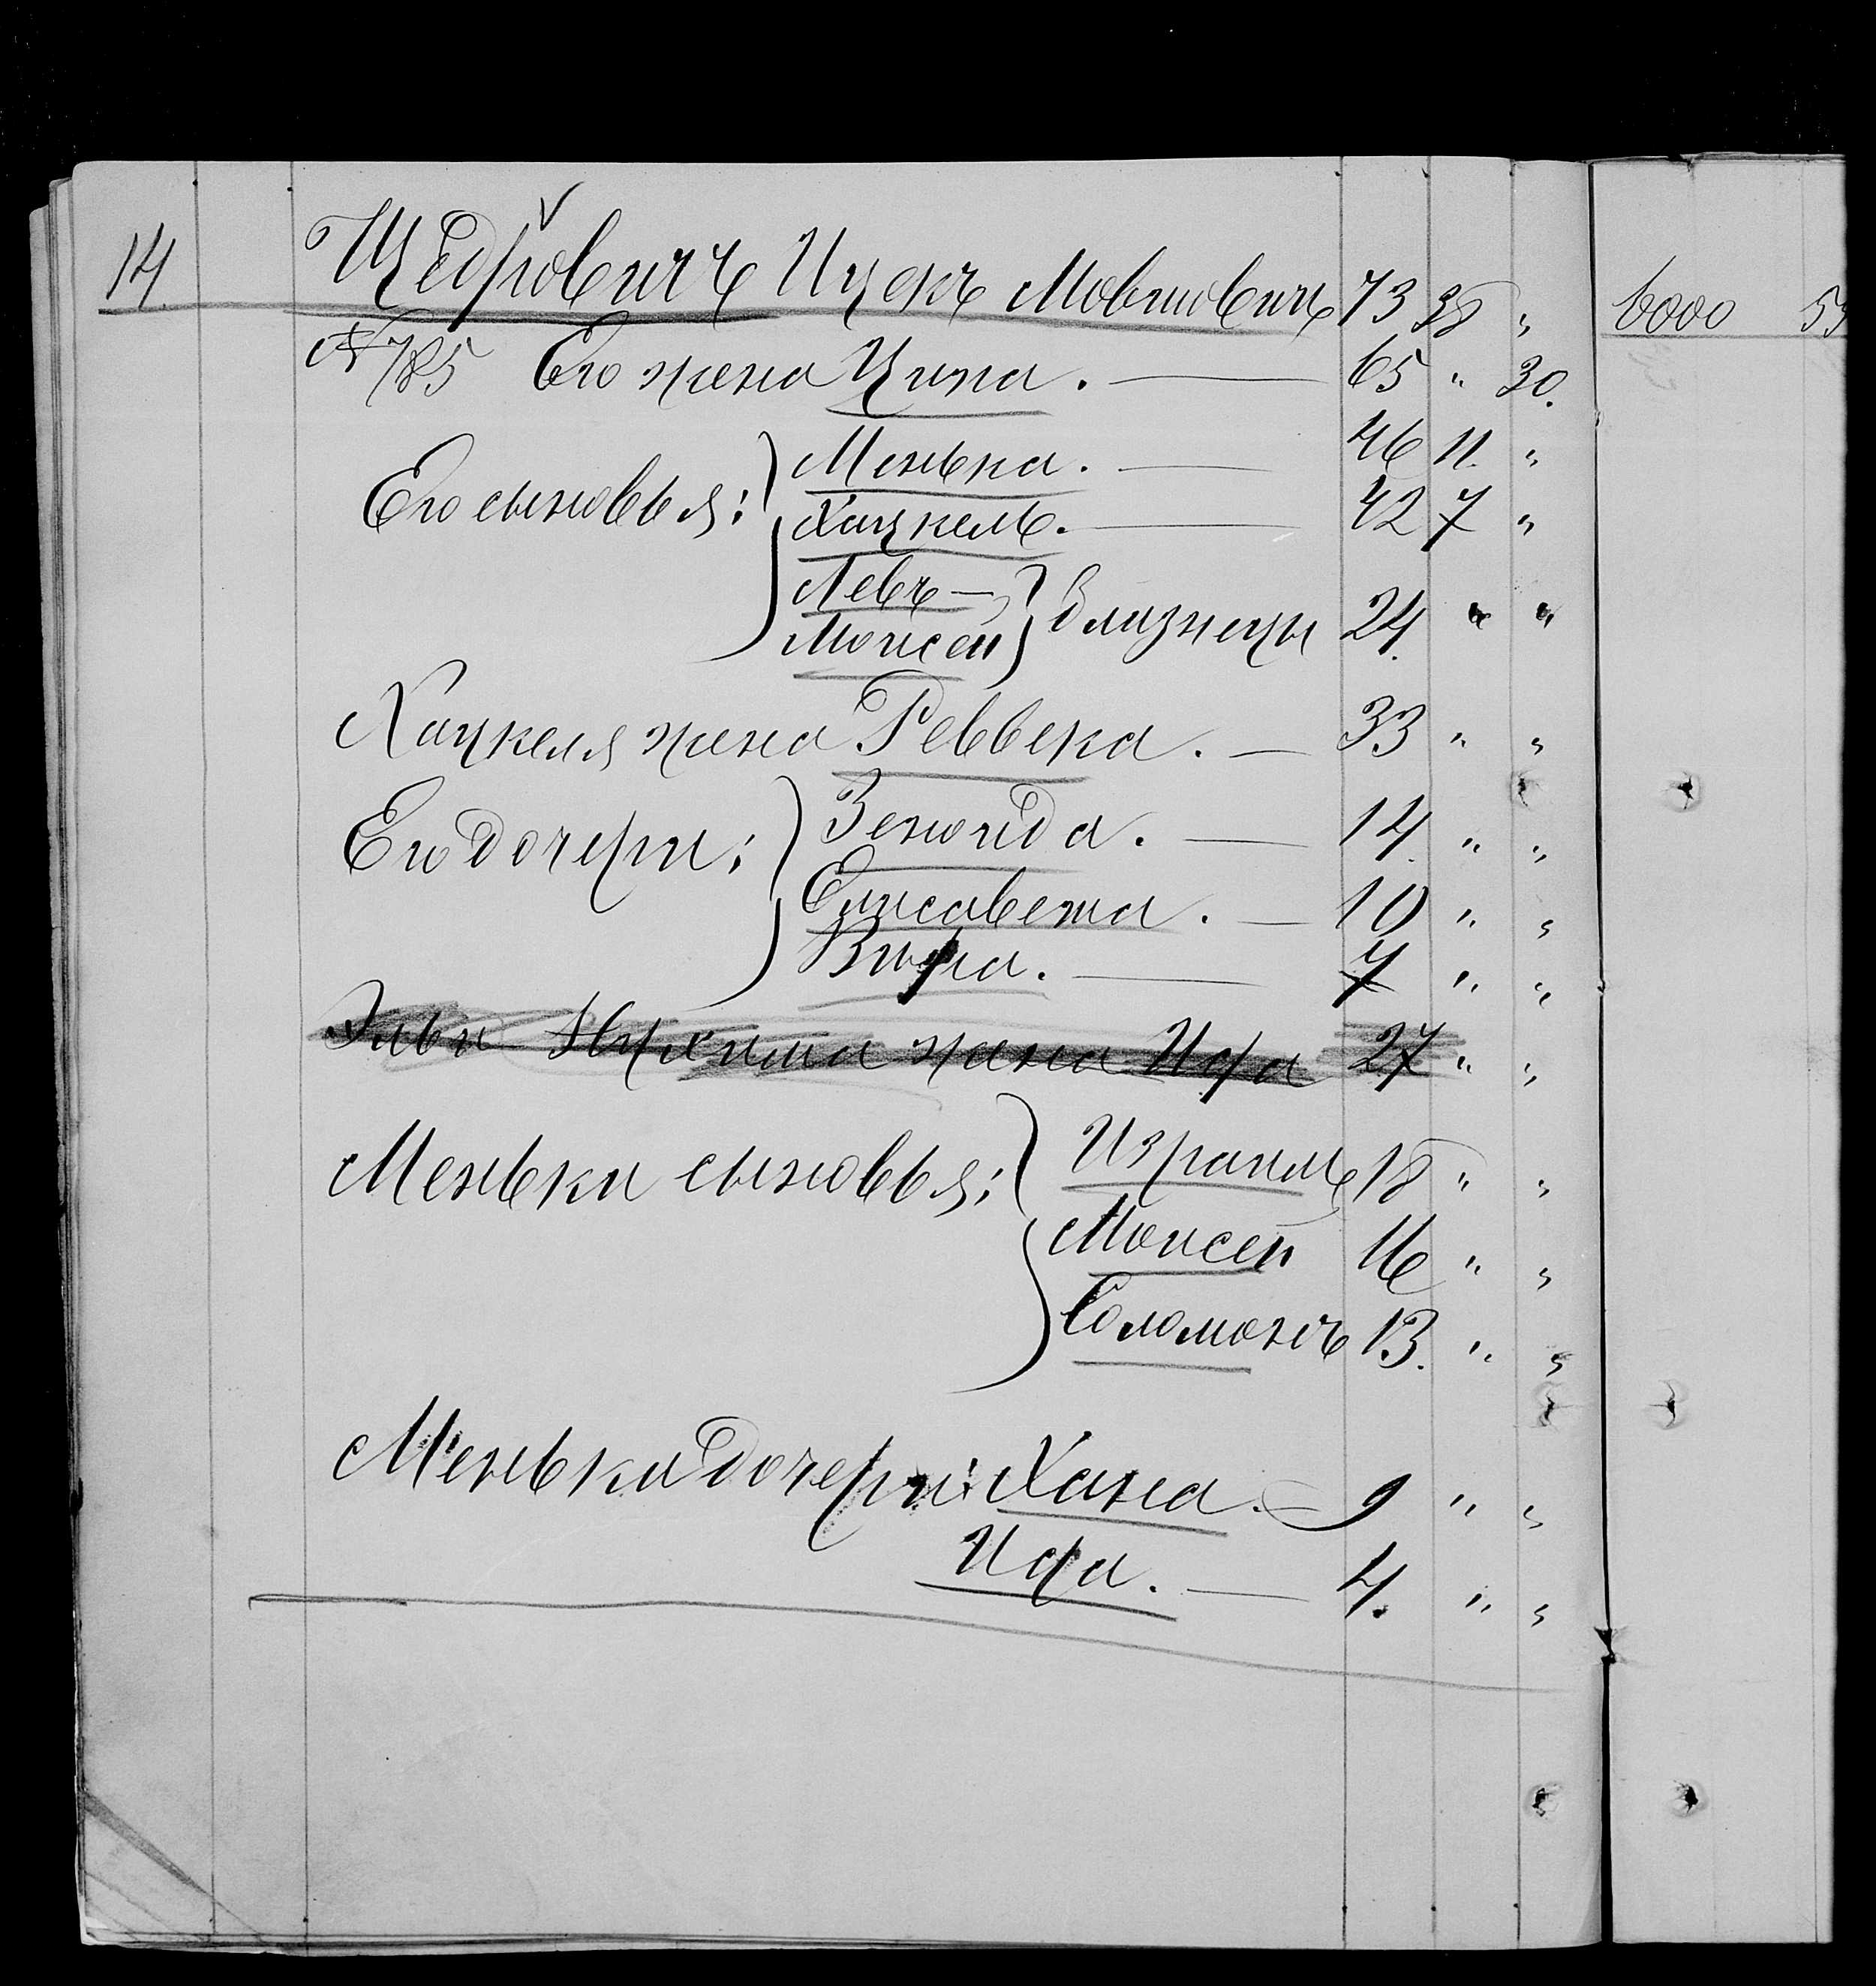 14. Щедровичъ Ицекъ Мовшовичъ 73 38 " 6000 55
№ 785 Его жена Ципа. — 65 " 30.
Менька. — 46 11. "
Его сыновья: Хацкель. — 42 7 "
Левъ —
Моисей } близнецы 24. " "
Хацкеля жена Реввека. — 33 " "
Его дочери: Зеноида. — 14. " "
Елисавета. — 10 " "
Вира. — 7 " "
Нухима жена Ифа 27 " "
Меньки сыновья: Израиль 18 " "
Моисей 16 " "
Соломонъ 13. " "
Меньки дочери: Хана. — 9 " "
Ифа. — 4. " "